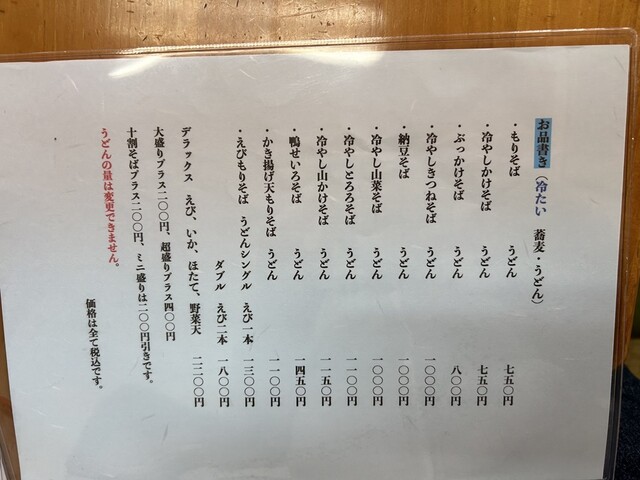 お品書き（冷たい　蕎麦・うどん）
・もりそば　うどん　七五〇円
・冷やしかけそば　うどん　七五〇円
・ぶっかけそば　うどん　八〇〇円
・冷やしきつねそば　うどん　一〇〇〇円
・納豆そば　うどん　一〇〇〇円
・冷やし山菜そば　うどん　一〇〇〇円
・冷やしとろろそば　うどん　一一〇〇円
・冷やし山かけそば　うどん　一一五〇円
・鴨せいろそば　うどん　一四五〇円
・かき揚げ天もりそば　うどん　一一〇〇円
・えびもりそば　うどんシングル　えび一本　一三〇〇円
ダブル　えび二本　一八〇〇円
デラックス　えび、いか、ほたて、野菜天　二二〇〇円
大盛りプラス二〇〇円、超盛りプラス四〇〇円
十割そばプラス二〇〇円、ミニ盛りは二〇〇円引きです。
うどんの量は変更できません。
価格は全て税込です。